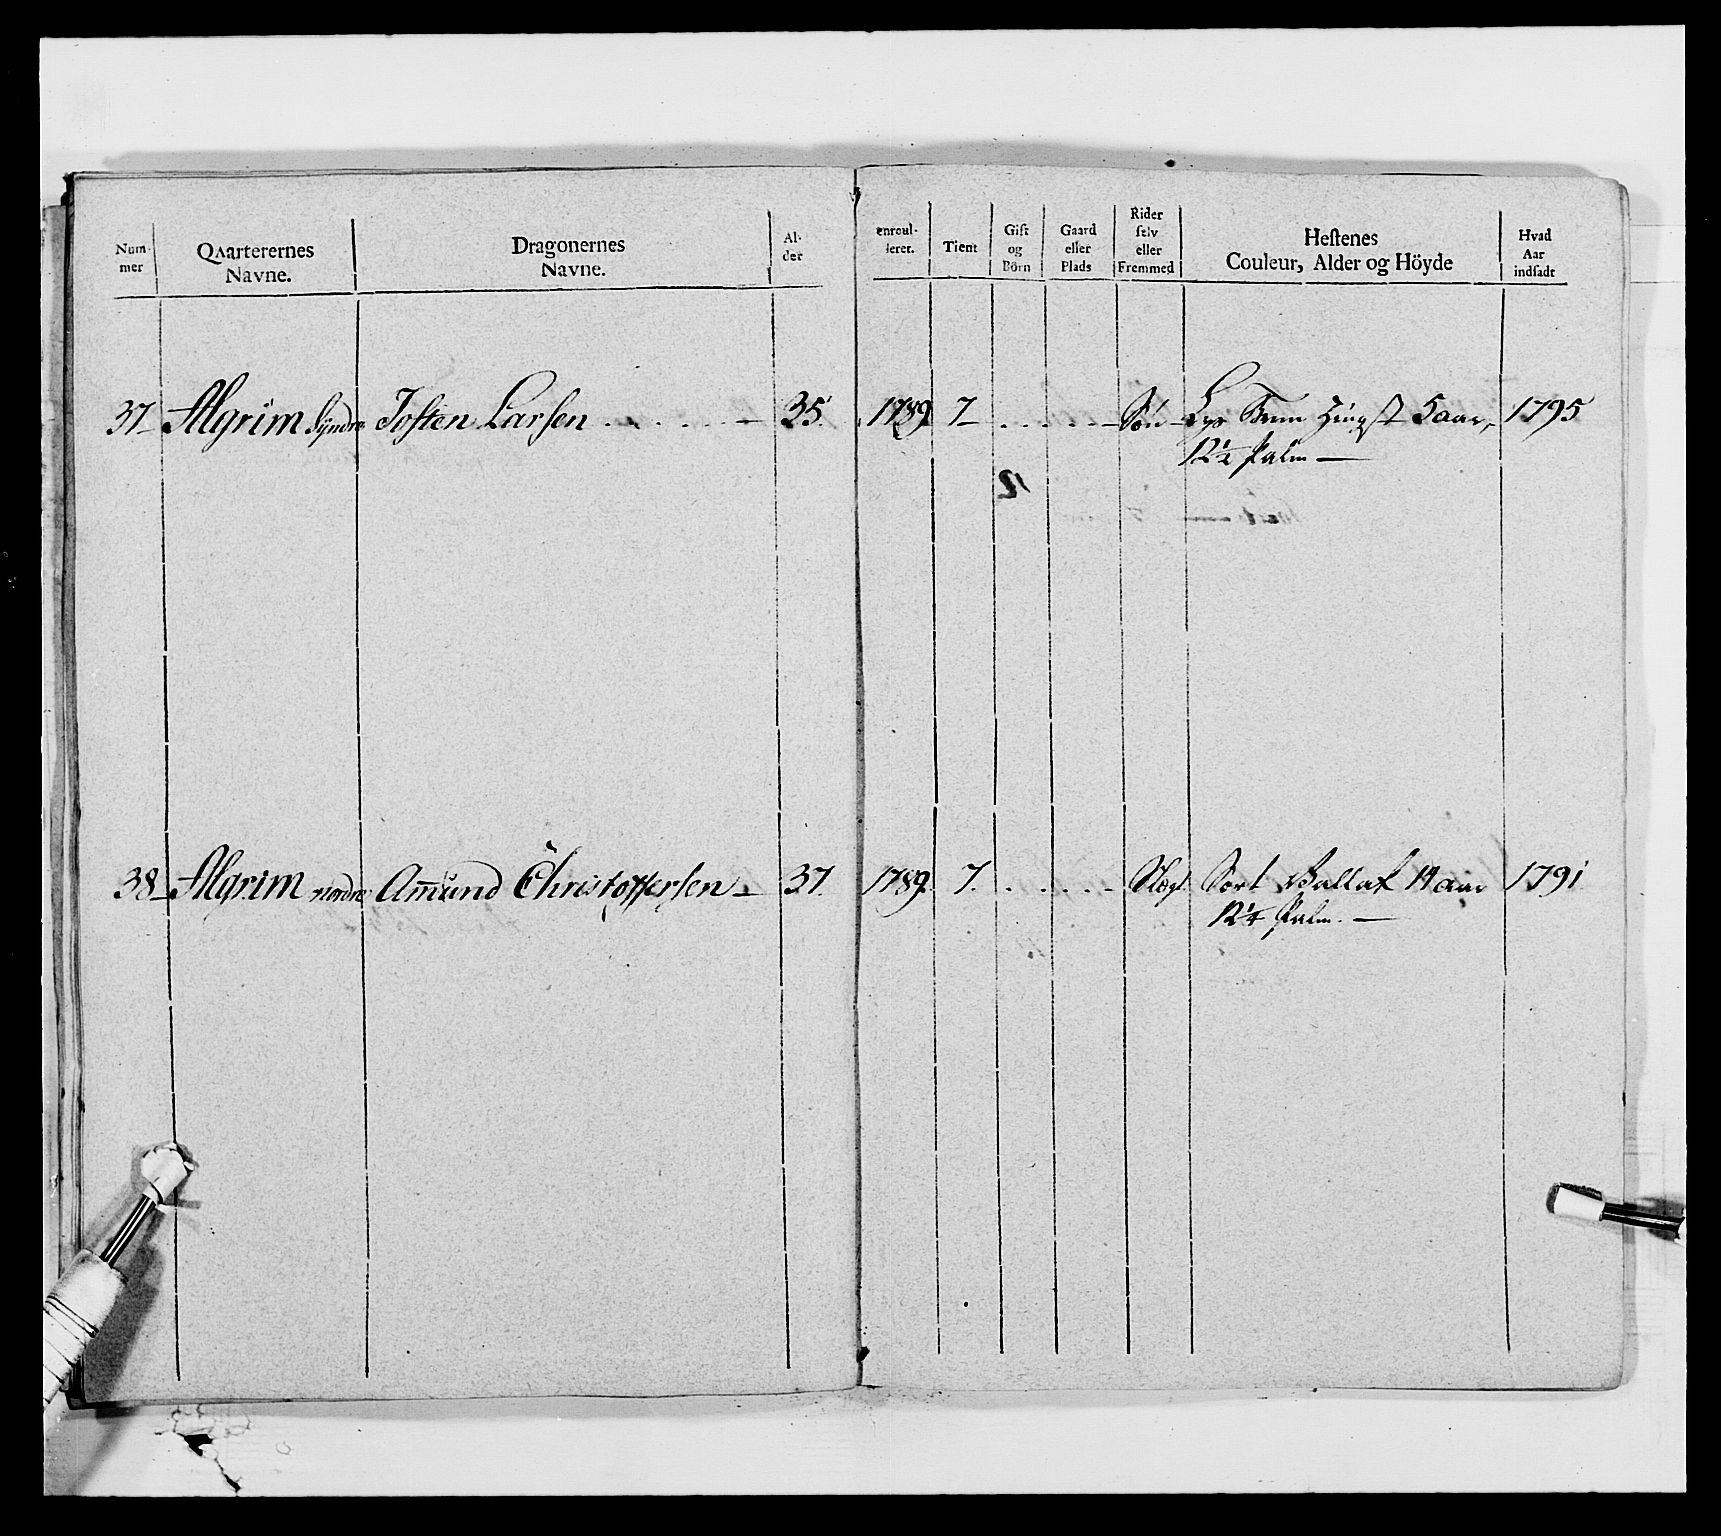 Num-
mer
Qvarterernes
Navne.
Dragonernes
Navne.
Al-
der
enroul-
lerer.
Tient
Gift
og
Börn
Gaard
eller
Plads
Rider
selv
eller
Fremmed
Hestenes
Couleur, Alder og Höyde
Hvad
Aar
indsadt
37 Algrim Syndre Josten Larsen 35. 1789 7 Sön Lys Brun Hingst 5 aar, 1795
12½ Palm
38 Algrim nordre Amund Christoffersen 37. 1789. 7. Sort Vallak 14 aar 1791
12¼ Palm.